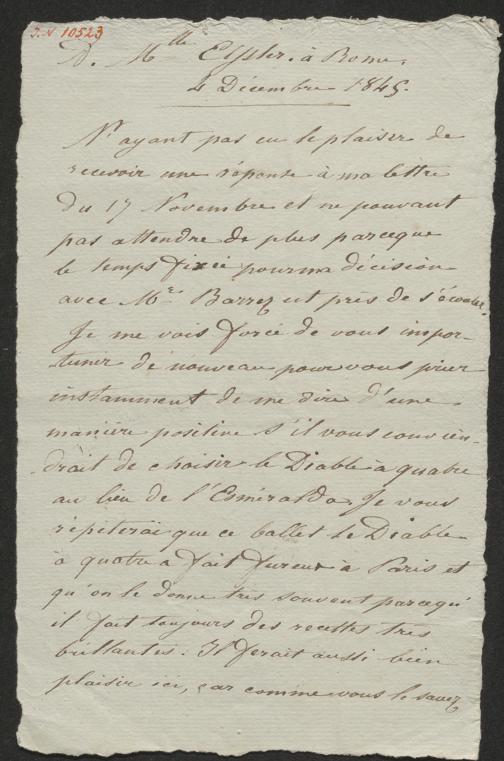 J. N 10523
A. Mlle Elssler. à Rome.
4 Décembre 1845.
N'ayant pas eu le plaisir de
recevoir une réponse à ma lettre
du 17 Novembre et ne pouvant
pas attendre de plus parceque
le temps fixée pour ma décision
avec Mr. Barrez est près de s'écouler,
Je me vois forcé de vous impor-
tuner de nouveau pour vous prier
instamment de me dire d'une
manière positive s'il vous convien-
drait de choisir le Diable à quatre
au lieu de l'Esméralda. Je vous
répiterai que ce ballet le Diable
à quatre a fait fureur à Paris et
qu'on le donne très souvent parcequ'
il fait toujours des recettes très
brillantes. Il ferait aussi bien
plaisir ici, car comme vous le savez